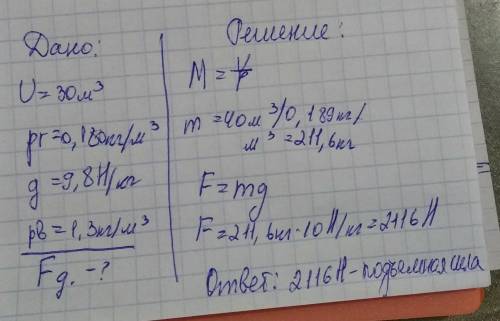 Дано:
U=30м³
рг=0,180кг/м³
g=9,8Н/кг
рв=1,3кг/м³
Fg.-?
Решение:
M=V/р
m=40м³/0,189кг/
м³=211,6кг
F=mg
F=211,6кг·10Н/кг=2116Н
Ответ: 2116Н-подъемная сила